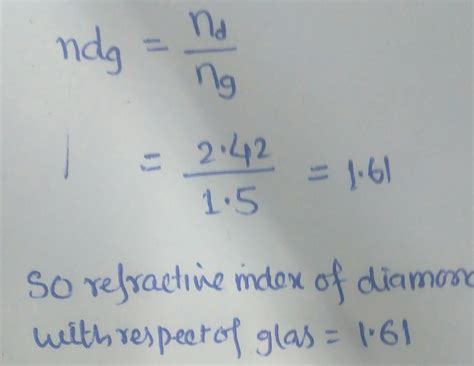 ndg = nd/ng
| = 2.42/1.5 = 1.61
So refractive index of diamond
with respect of glas = 1.61